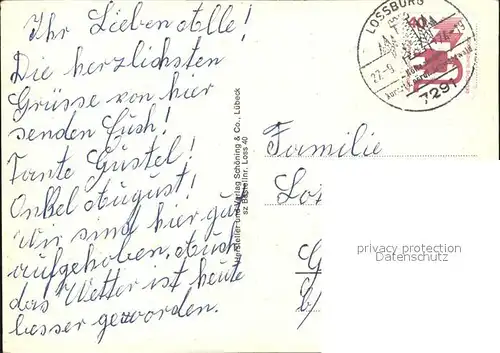 Ihr Lieben alle!
Die herzlichsten
Grüsse von hier
senden Euch!
Tante Gustel!
Onkel August!
Wir sind hier gut
aufgehoben, auch
das Wetter ist heute
besser geworden.
Hersteller und Verlag Schöning & Co., Lübeck
sz Bestellnr. Loss 40
LOSSBURG
7291
Familie
privacy protection
Datenschutz